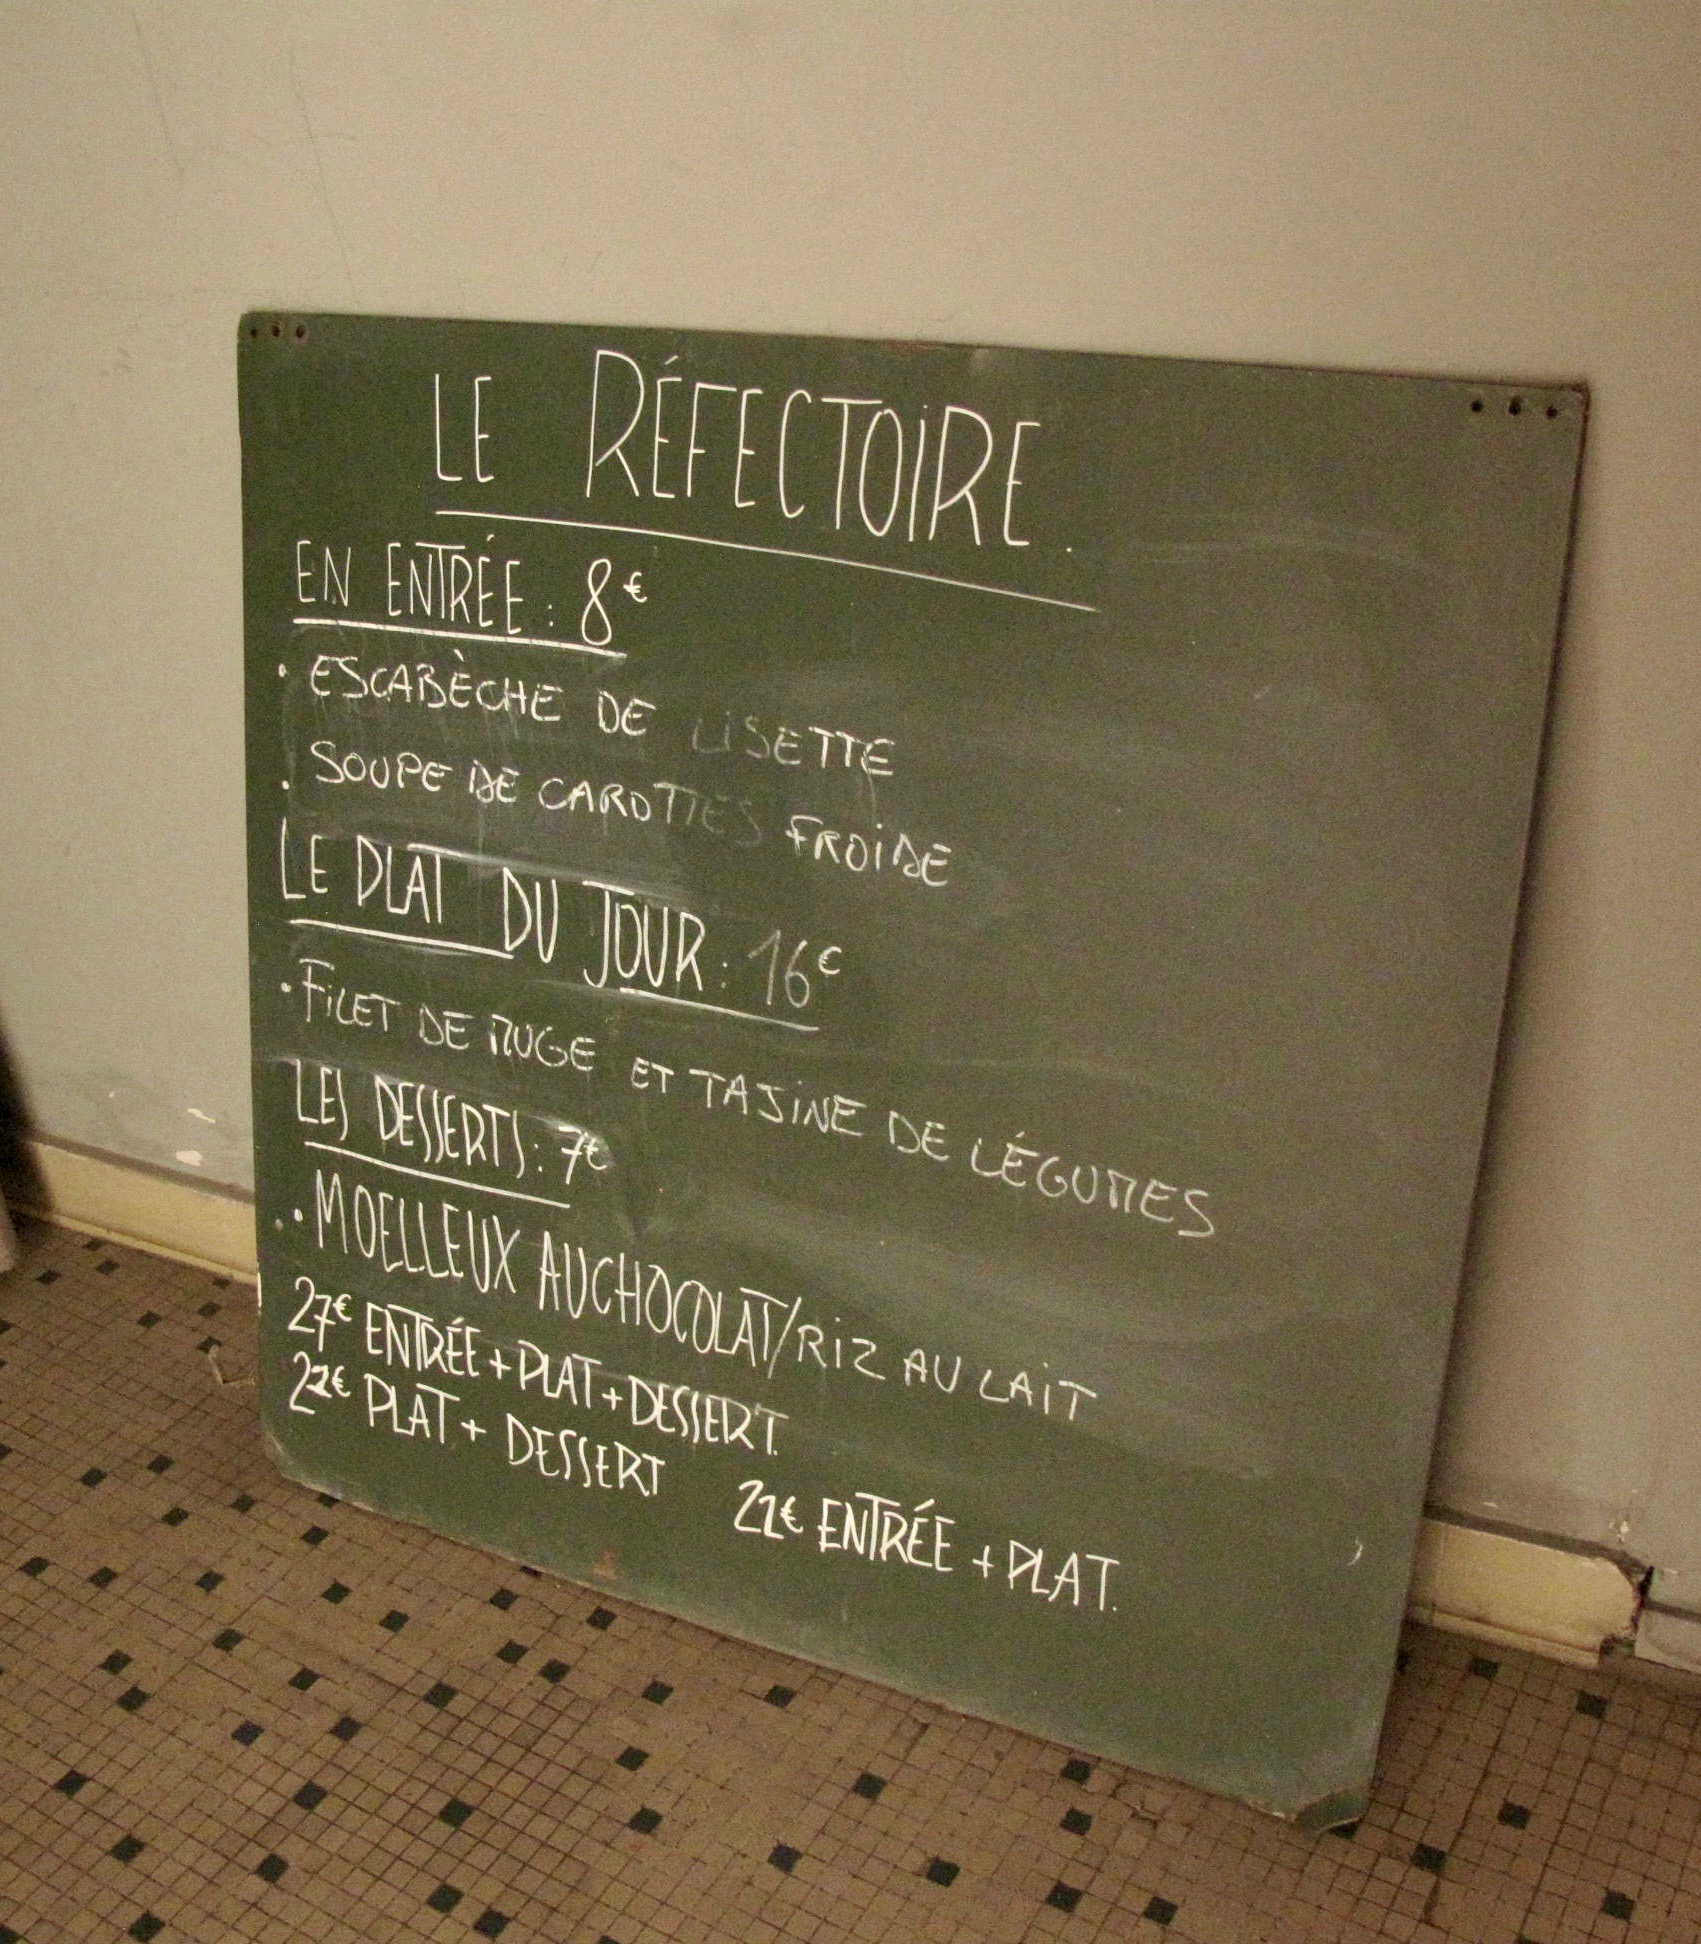 LE RÉFECTOIRE.
EN ENTRÉE : 8€
· ESCABÈCHE DE LISETTE
· SOUPE DE CAROTTES FROIDE
LE PLAT DU JOUR : 16€
· FILET DE MUGE ET TAJINE DE LÉGUMES
LES DESSERTS : 7€
· MOELLEUX AU CHOCOLAT/RIZ AU LAIT
27€ ENTRÉE + PLAT + DESSERT.
22€ PLAT + DESSERT
22€ ENTRÉE + PLAT.